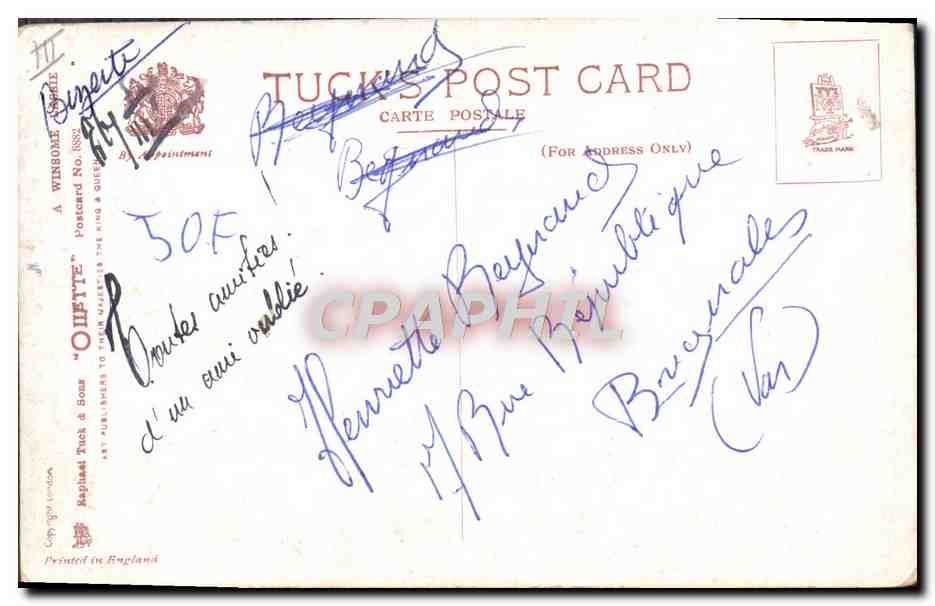 III
Bizerte
TUCK'S POST CARD
CARTE POSTALE
By Appointment
(FOR ADDRESS ONLY)
TRADE MARK
Beynaud
Beynaud
50F
Toutes amitiés!
d'un ami oublié.
Henriette Beynaud
17 Rue République
Brignoles
(Var)
A WINSOME
Raphael Tuck & Sons "OILETTE" Postcard No. 8882
ART PUBLISHERS TO THEIR MAJESTIES THE KING & QUEEN
Copyright London
Printed in England
CPAPHIL